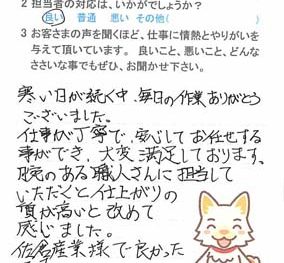 2 担当者の対応は、いかがでしょうか?
良い 普通 悪い その他( )
3 お客さまの声を聞くほど、仕事に情熱とやりがいを
与えて頂いています。 良いこと、悪いこと、どんな
ささいな事でもぜひ、お聞かせ下さい。
寒い日が続く中、毎日の作業ありがとう
ございました。
仕事が丁寧で、安心してお任せする
事ができ、大変満足しております。
腕のある職人さんに担当して
いただくと仕上がりの
質が高いと改めて
感じました。
佐倉産業様で良かった